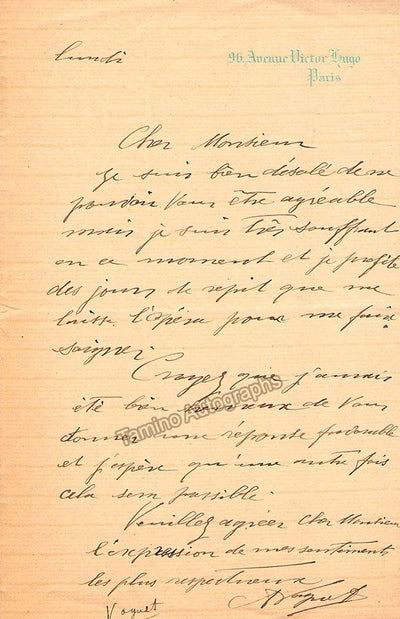 lundi
96. Avenue Victor Hugo
Paris
Cher Monsieur
Je suis bien désolé de ne
pouvoir vous être agréable
mais je suis très souffrant
en ce moment et je profite
des jours de répit que me
laisse l'Opéra pour me faire
soigner.
Croyez que j'aurais
été bien heureux de vous
donner une réponse favorable
et j'espère qu'une autre fois
cela sera possible.
Veuillez agréer Cher Monsieur
l'expression de mes sentiments
les plus respectueux
Vaguet
AVaguet
Tamino Autographs